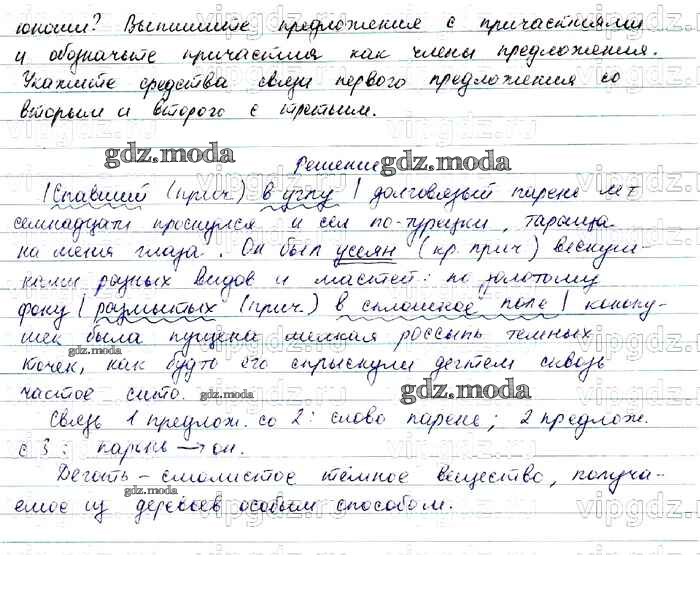 юноши? Выпишите предложения с причастиями
и обозначьте причастия как члены предложения.
Укажите средства связи первого предложения со
вторым и второго с третьим.
gdz.moda Решение gdz.moda
|Спавший (прич.) в углу| долговязый парень лет
семнадцати проснулся и сел по-турецки, тараща
на меня глаза. Он был усеян (кр. прич) веснуш-
ками разных видов и мастей: по золотому
фону |размытых (прич.) в сплошное поле| коноп-
шек была пущена мелкая россыпь темных
gdz.moda
точек, как будто его спрыснули дегтем сквозь
частое сито. gdz.moda gdz.moda
Связь 1 предлож. со 2: слово парень; 2 предлож.
с 3: парень → он.
Деготь – смолистое темное вещество, получа-
gdz.moda
емое из деревьев особым способом.